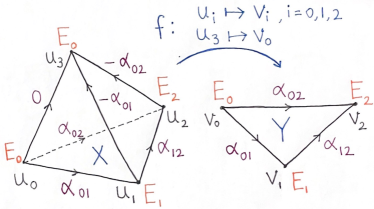 f: uᵢ ↦ vᵢ , i=0,1,2
u₃ ↦ v₀
E₀
u₃
-α₀₂
0
-α₀₁
E₂
u₂
α₀₂
X
α₁₂
E₀
u₀
α₀₁
u₁
E₁
E₀
v₀
α₀₂
E₂
v₂
Y
α₀₁
α₁₂
v₁
E₁